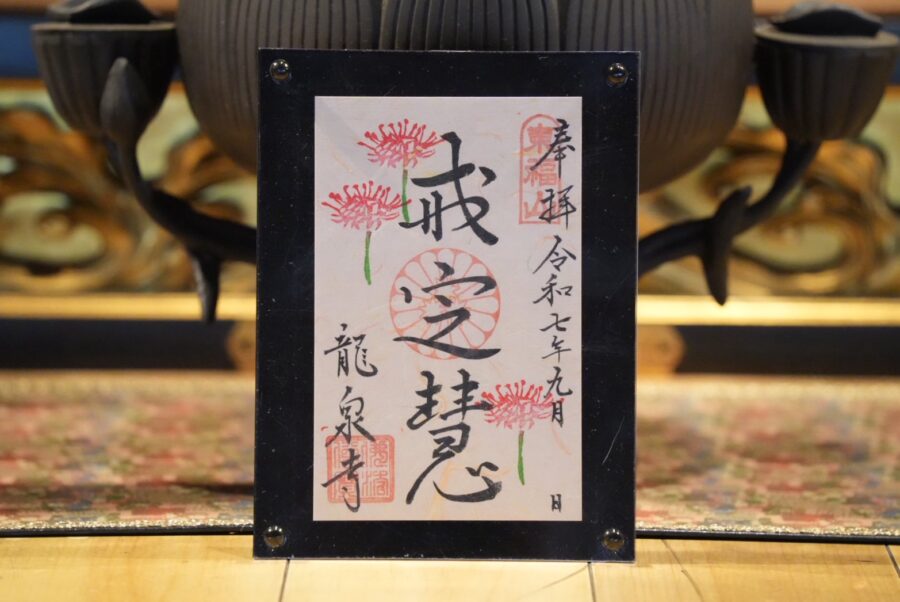 奉拝 令和七年九月 日
東福山
戒定慧
龍泉寺